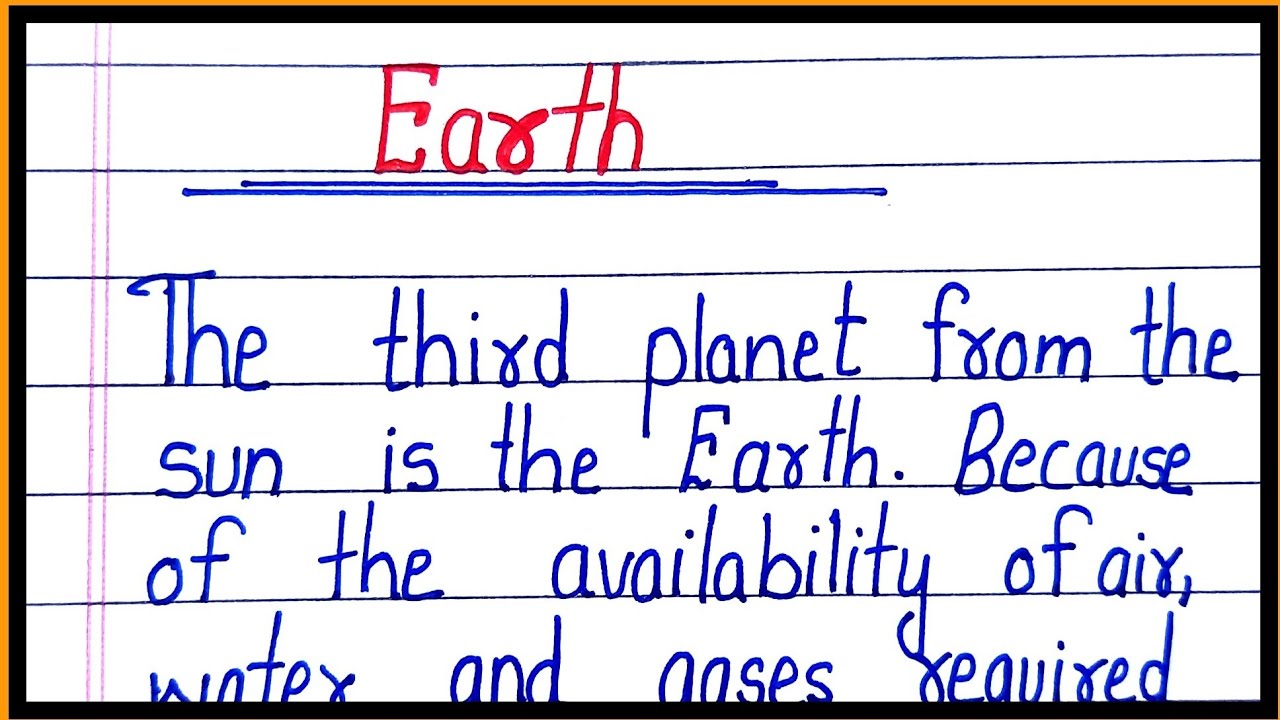 Earth
The third planet from the
sun is the Earth. Because
of the availability of air,
water and gases required